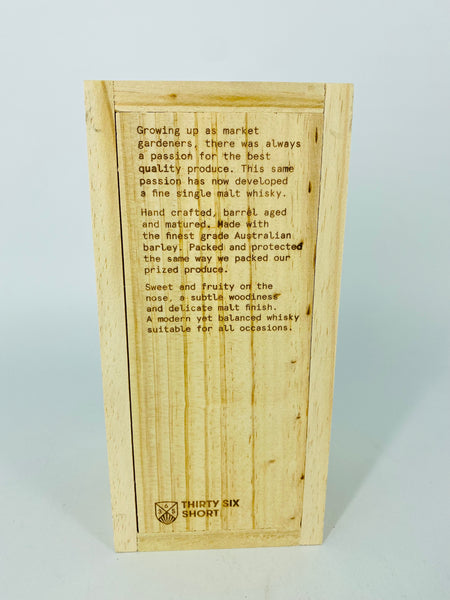 Growing up as market
gardeners, there was always
a passion for the best
quality produce. This same
passion has now developed
a fine single malt whisky.
Hand crafted, barrel aged
and matured. Made with
the finest grade Australian
barley. Packed and protected
the same way we packed our
prized produce.
Sweet and fruity on the
nose, a subtle woodiness
and delicate malt finish.
A modern yet balanced whisky
suitable for all occasions.
THIRTY SIX
SHORT